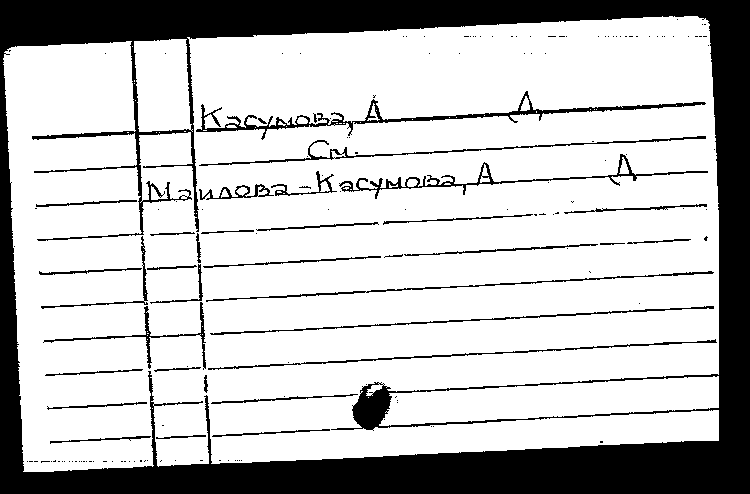 Касумова, А Д,
См.
Маилова-Касумова, А Д